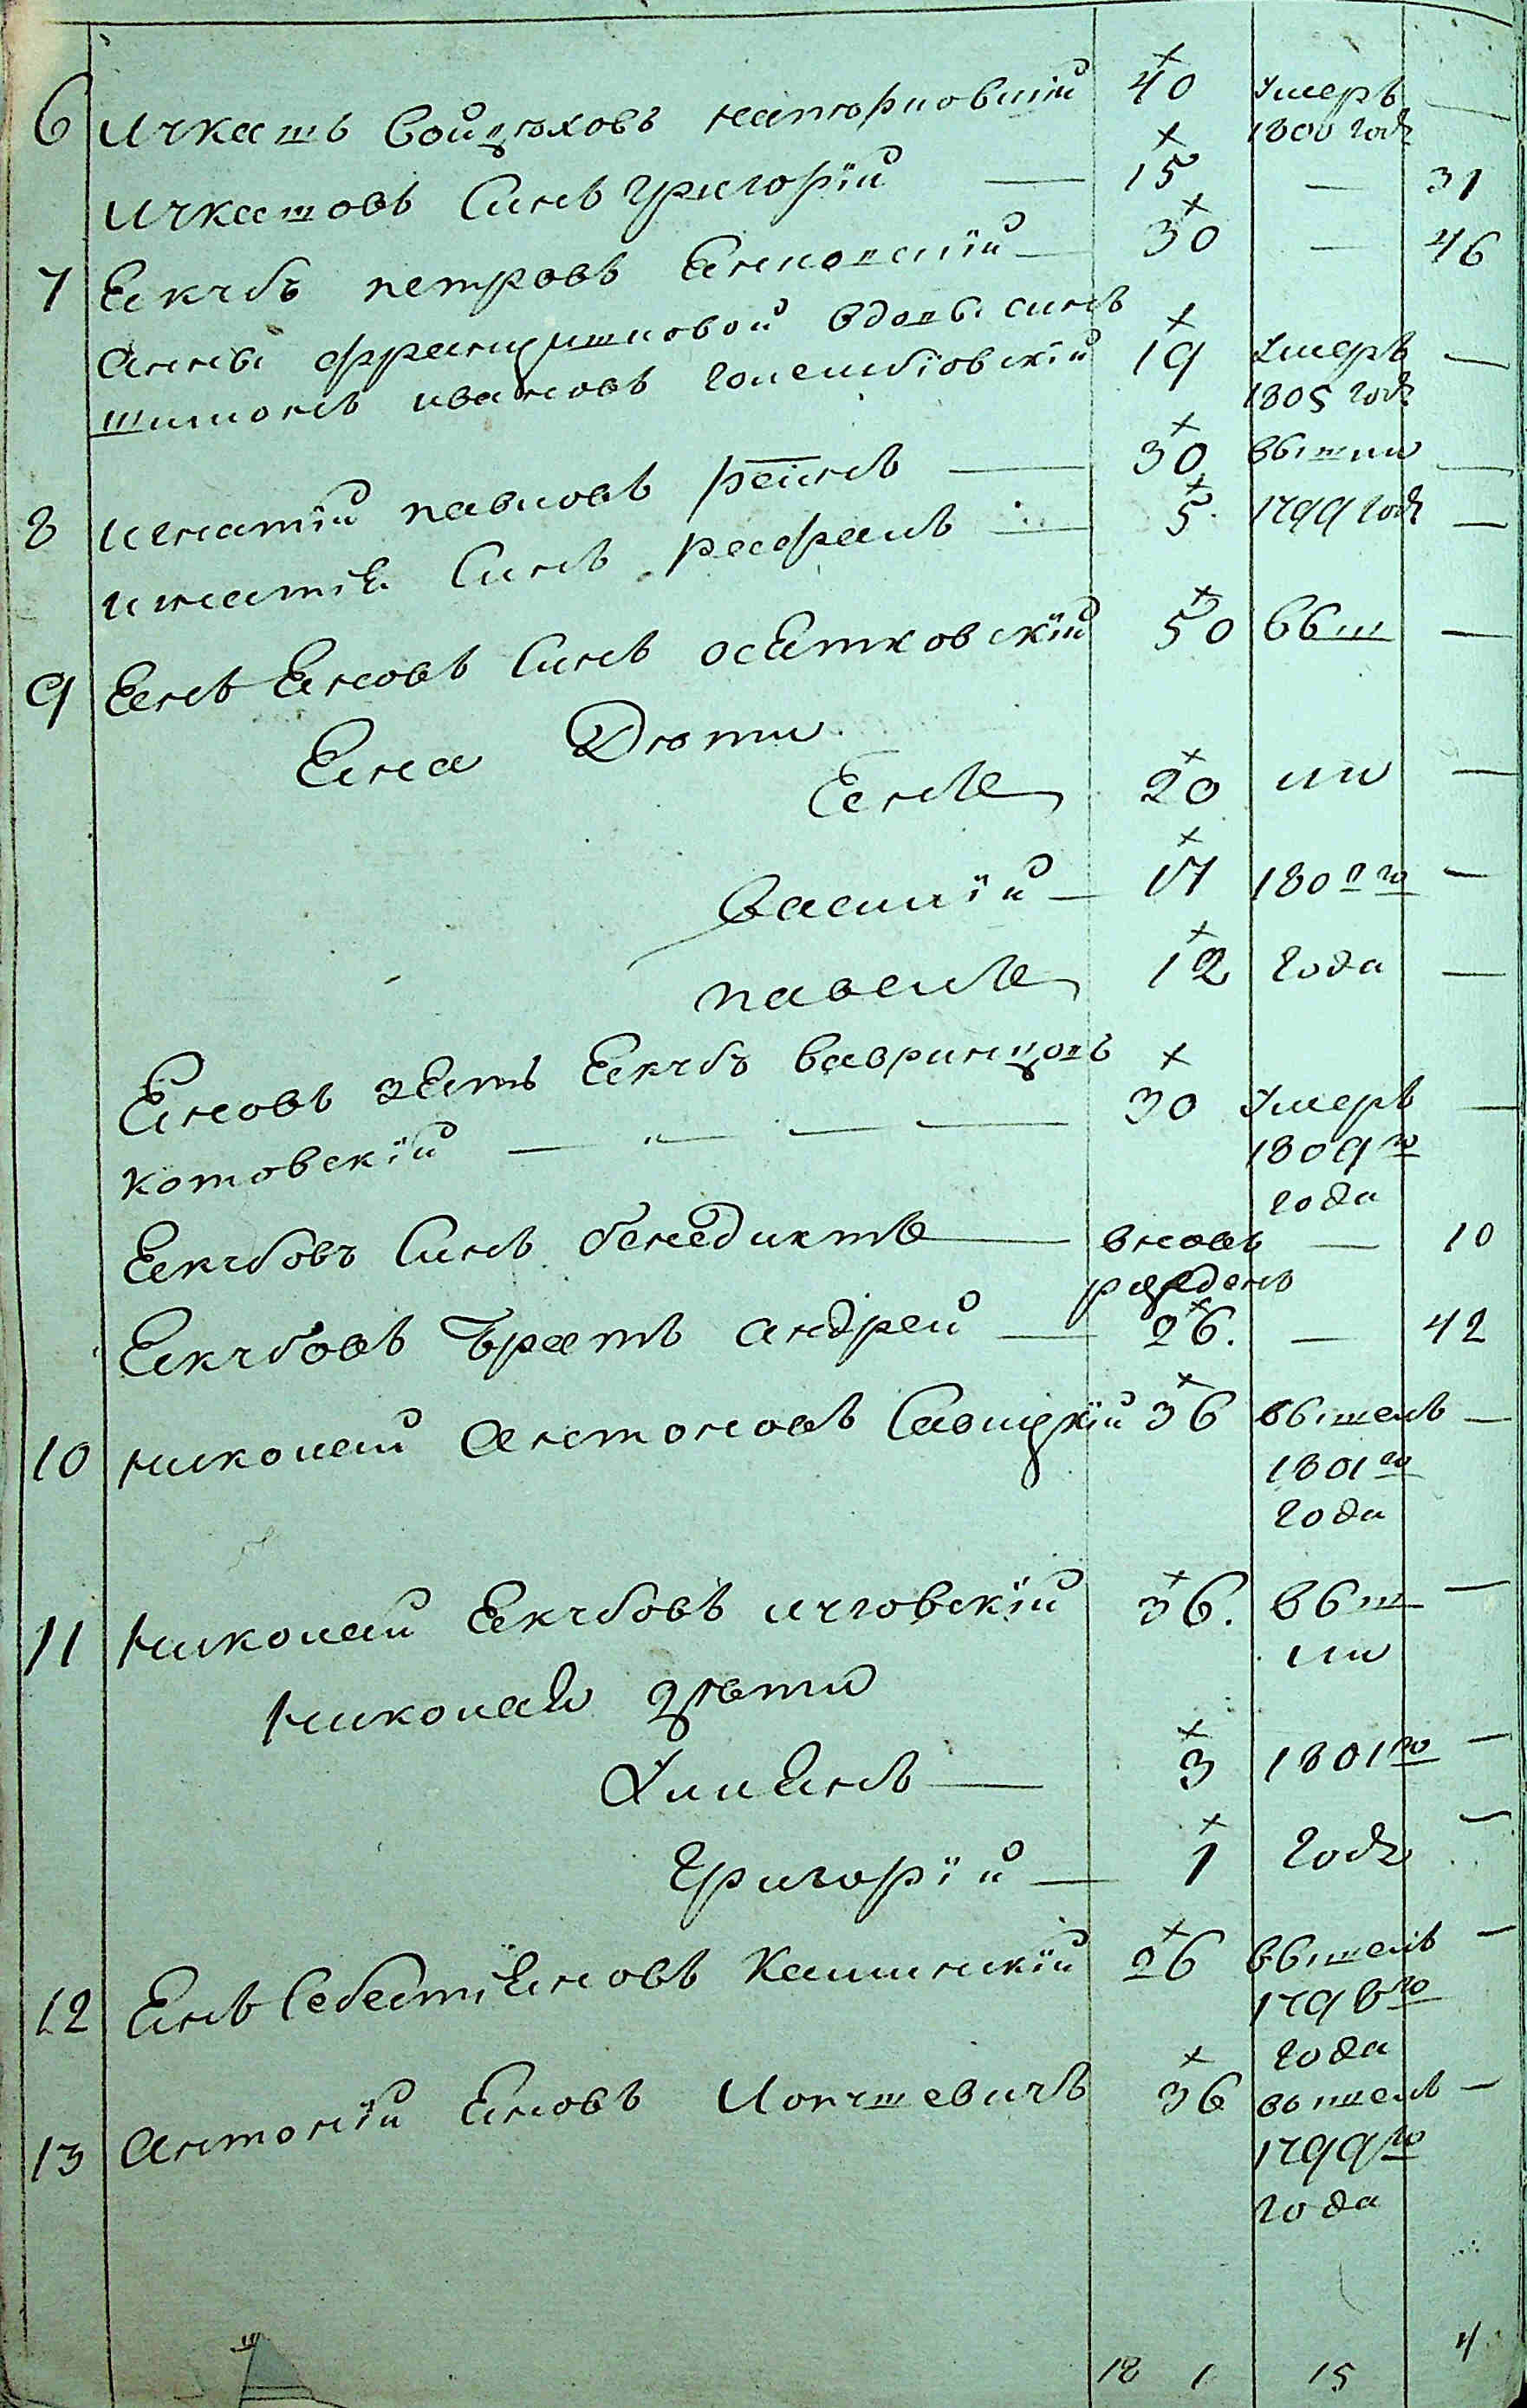 6 Лукашъ Войцѣховъ 40 Умеръ —
1800 года
Лукашовъ Сынъ Григорїй — 15 — 31
7 Якубъ петровъ Янковскїй — 30 — 46
Анны францишковой вдовы сынъ
шимонъ ивановъ голембїовскїй 19 Умеръ —
1805 года
8 игнатїй павловъ рейнъ — 30 вышли —
игнатїя Сынъ рафалъ — 5 1799 года —
9 Янъ Яновъ Сынъ осятковскїй 50 выш —
Яна Дѣти
Янъ 20 ли —
Василїй — 17 1800го —
павелъ 12 года —
Яновъ зять Якубъ вавринцовъ
котовскїй — — — — 30 Умеръ —
1809го
года
Якубовъ Сынъ бенедиктъ — вновь — 10
рожденъ
Якубовъ братъ андрей — 26. — 42
10 николай Антоновъ Савицкїй 36 вышелъ —
1801го
года
11 Николай Якубовъ 36. выш —
ли
Николая дѣти
— 3 1801го —
Григорїй — 1 года —
12 Янъ Себестїяновъ Калинскїй 26 вышелъ —
1798го
года
13 Антонїй Яновъ 36 вышелъ —
1799го
года
18 1 15 4